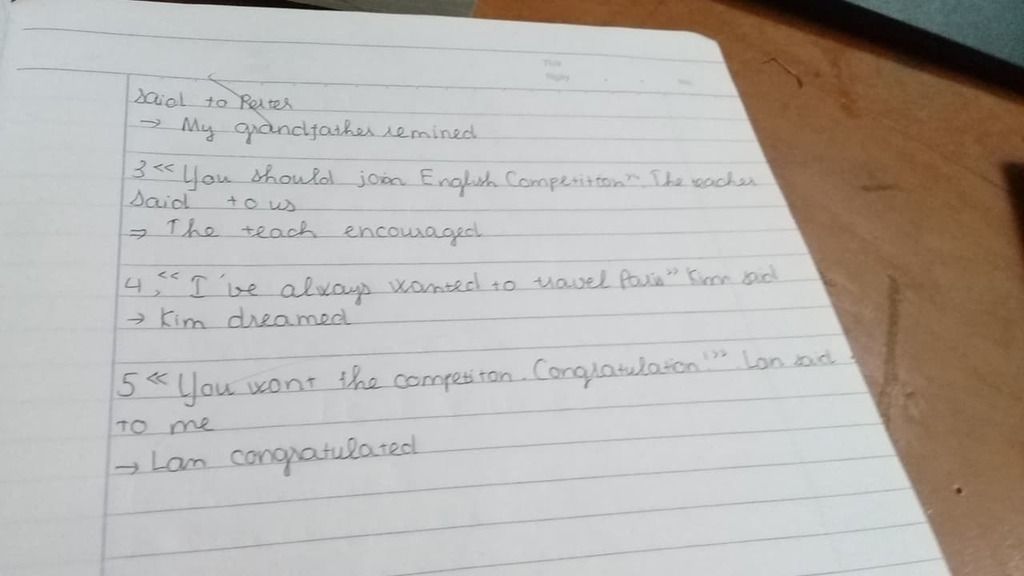 said to Peter
→ My grandfather remined
3 << You should join English Competition" The teacher
said to us
⇒ The teach encouraged
4, << I've always wanted to travel Paris" Kim said
→ Kim dreamed
5 << You wont the competiton. Congratulation!" Lan said
to me
→ Lan congratulated